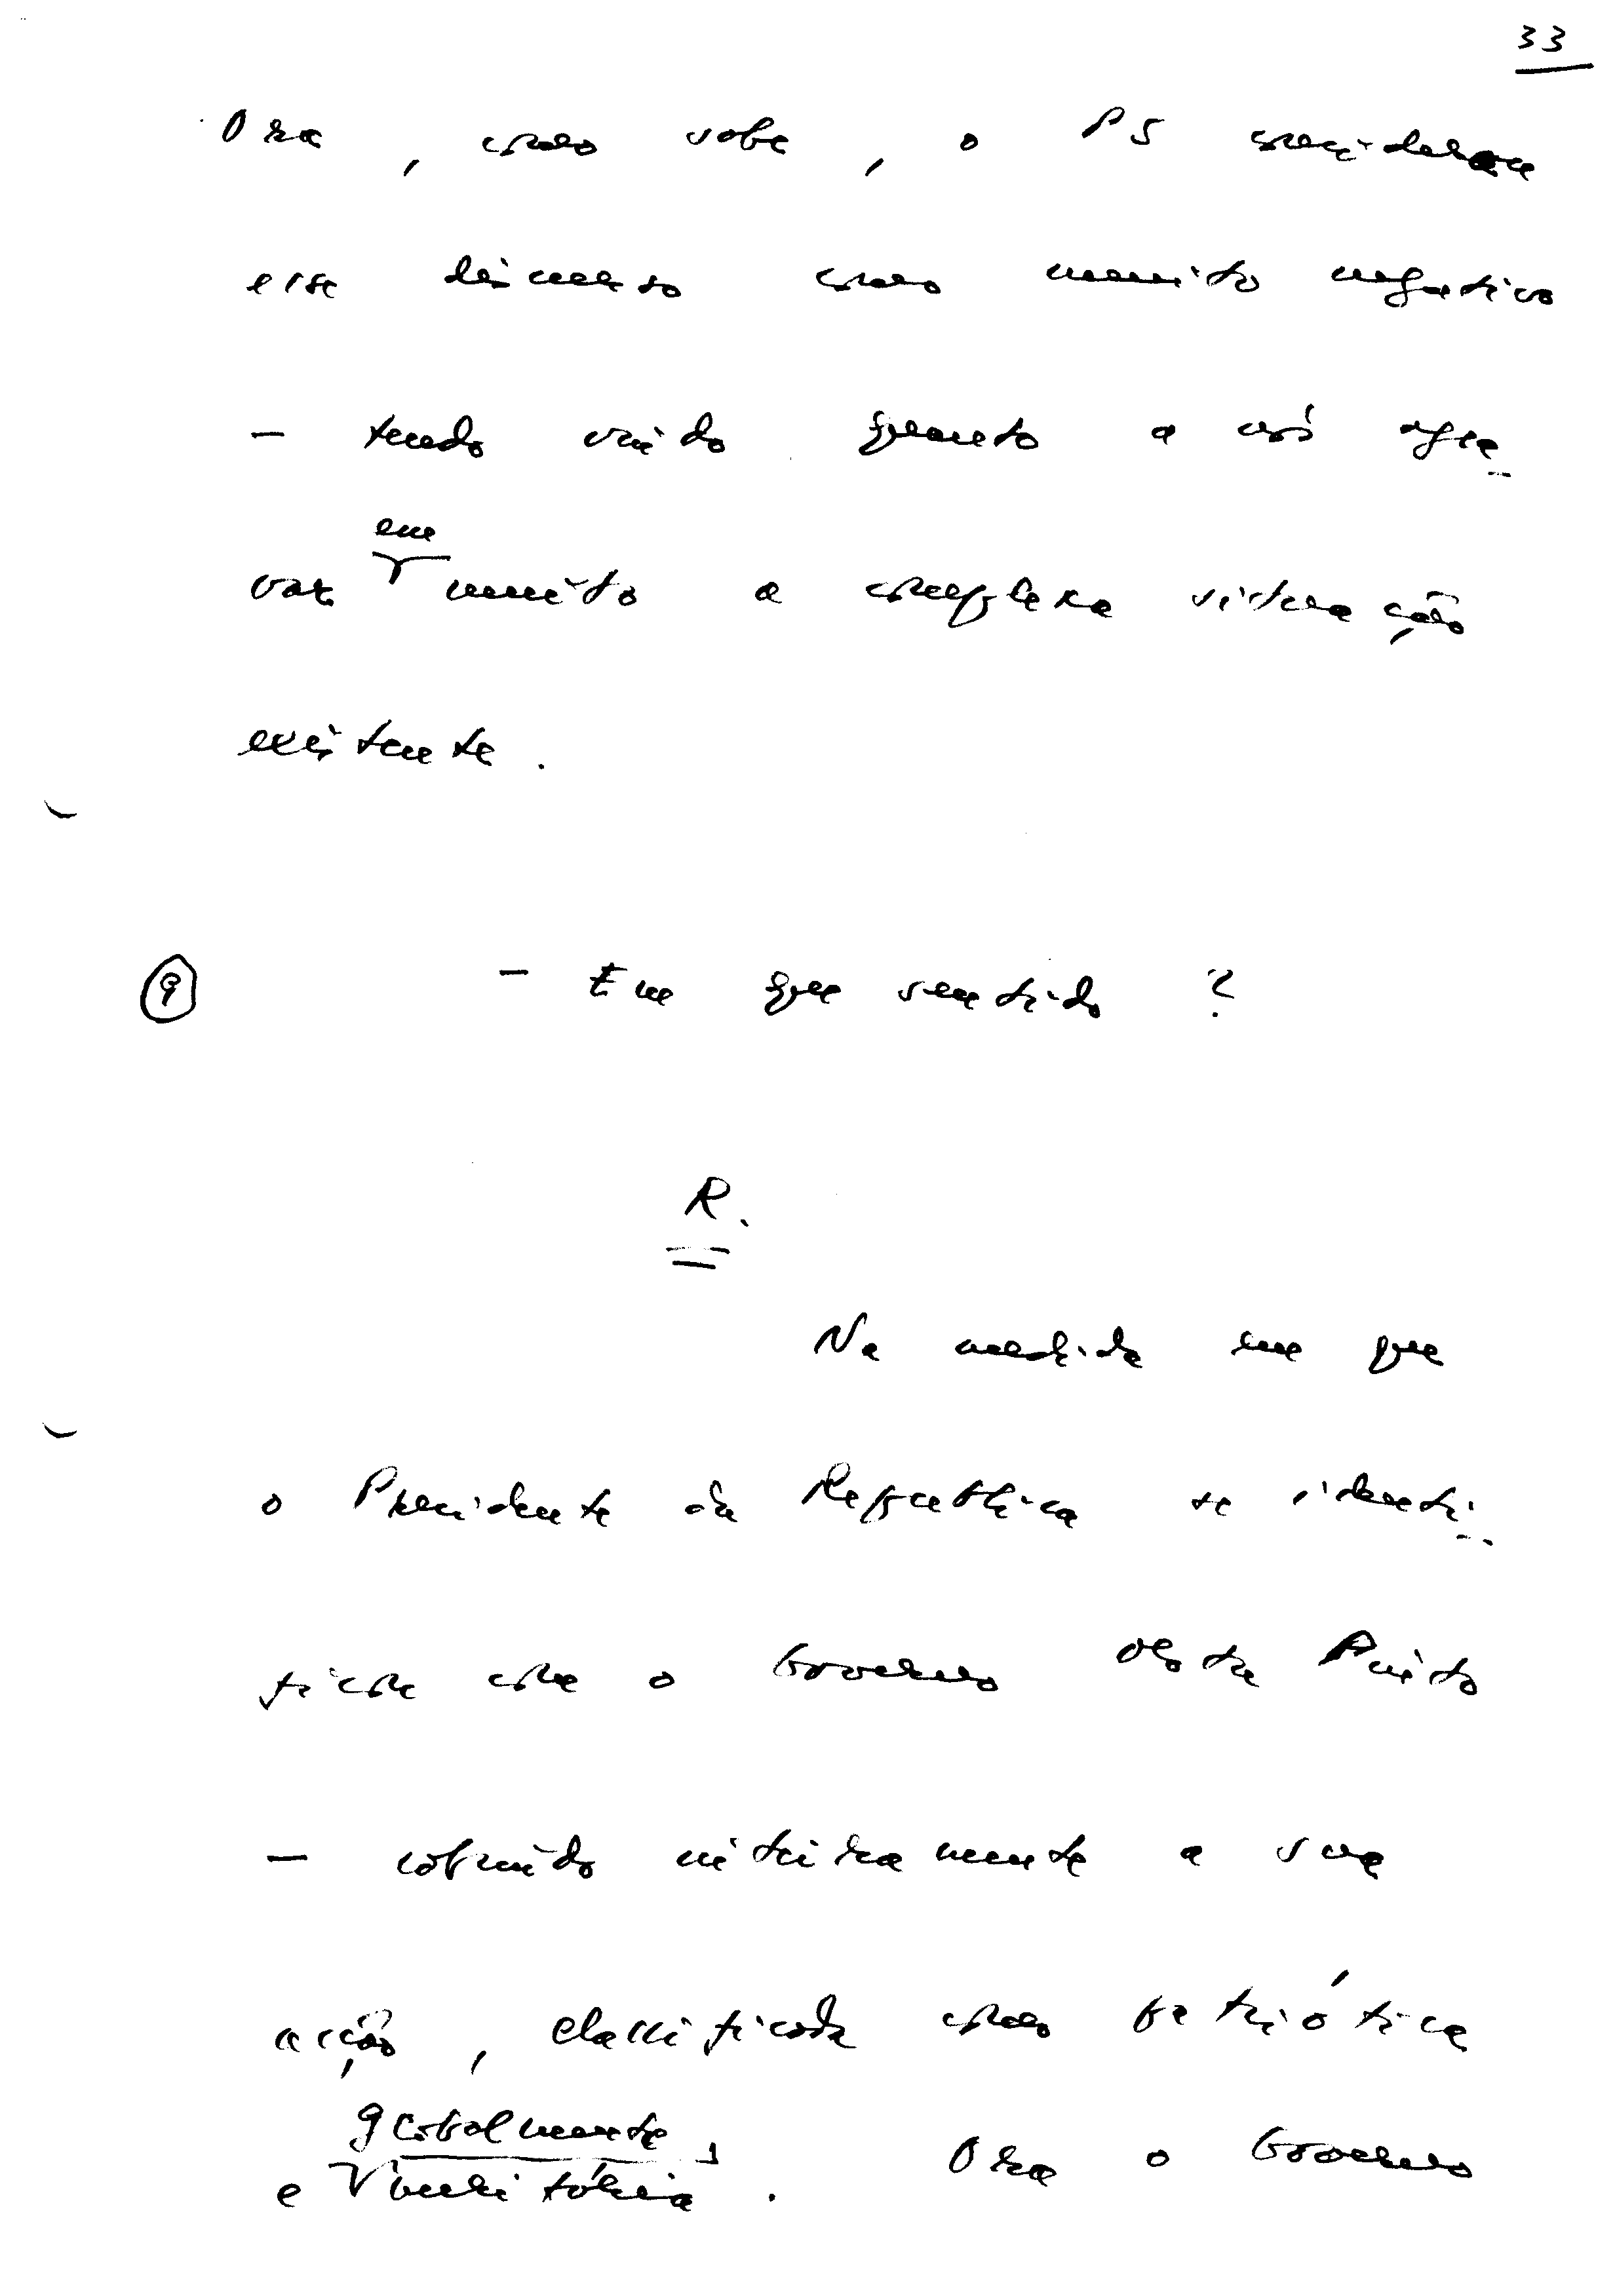 33
Ora, como sabe, o PS considerou
esse discurso como muito negativo
- tendo vindo quanto a nós agra-
var em muito a complexa situação
existente.
9 - Em que sentido?
R.
Na medida em que
o Presidente da República se identi-
ficou com o Governo Mota Pinto
- cobrindo inteiramente a sua
acção, classificada como patriótica
e globalmente meritória. Ora o Governo